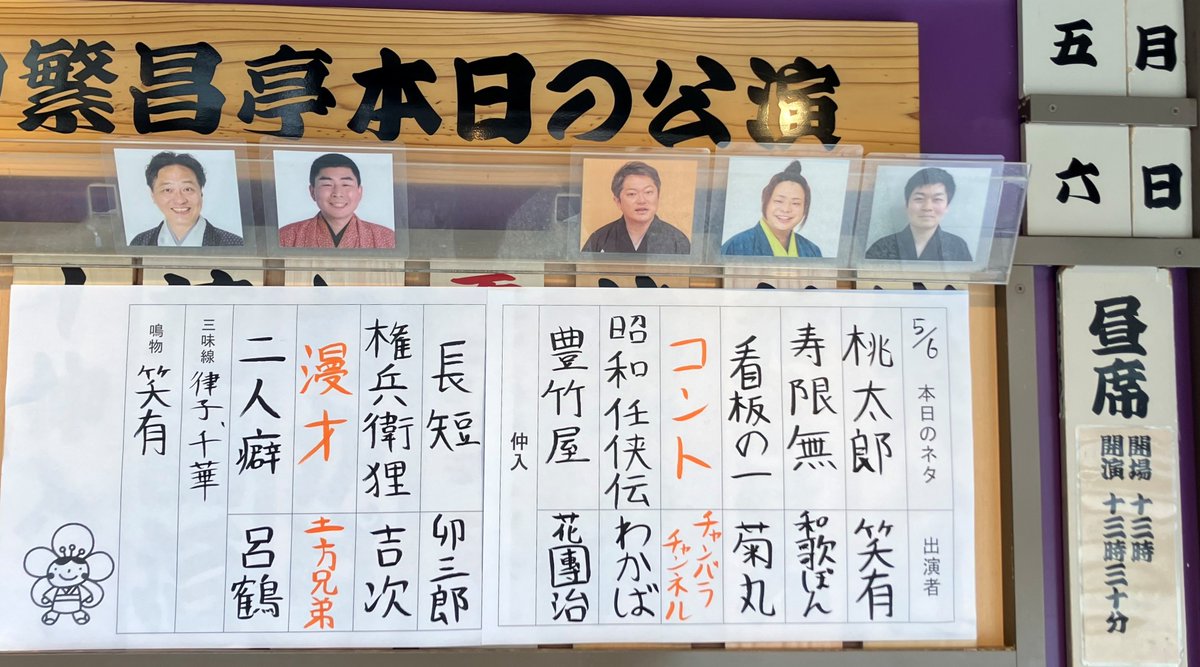 繁昌亭本日の公演
五月
六日
昼席
開場 十三時
開演 十三時三十分
5/6 本日のネタ 出演者
桃太郎 笑有
寿限無 和歌ぽん
看板の一 菊丸
コント チャンバラチャンネル
昭和任侠伝 わかば
豊竹屋 花團治
仲入
長短 卯三郎
権兵衛狸 吉次
漫才 土方兄弟
二人癖 呂鶴
三味線 律子、千華
鳴物 笑有